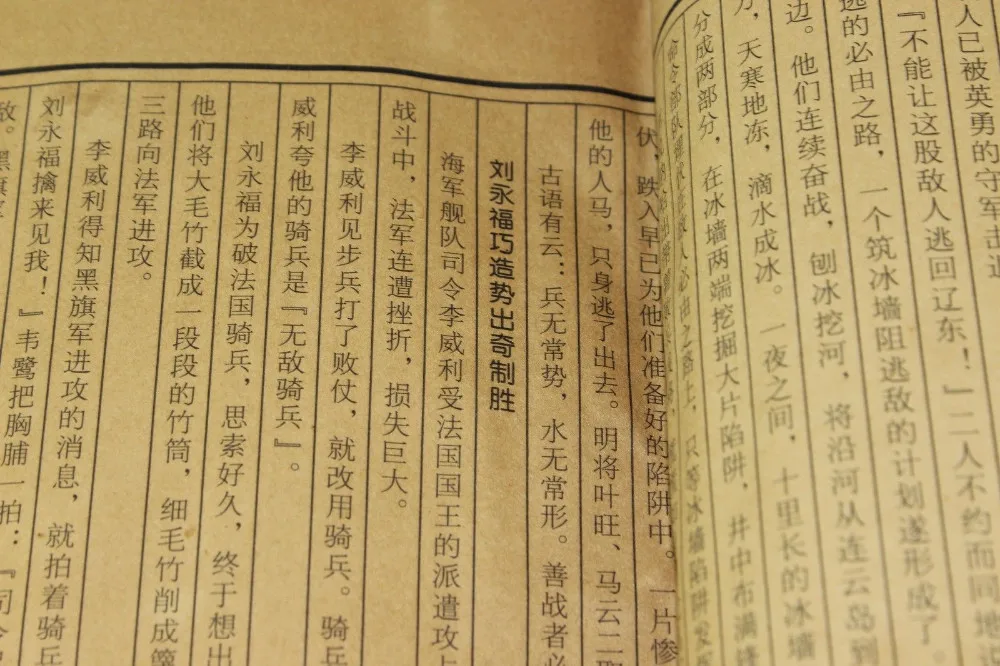 人已被英勇的守军击退
『不能让这股敌人逃回辽东！』二人不约而同地
逃的必由之路，一个筑冰墙阻逃敌的计划遂形成了
边。他们连续奋战，刨冰挖河，将沿河从连云岛到
天寒地冻，滴水成冰。一夜之间，十里长的冰墙
分成两部分，在冰墙两端挖掘大片陷阱，井中布满
必由之路上，只等冰墙陷阱
伏，跌入早已为他们准备好的陷阱中。一片惨
他的人马，只身逃了出去。明将叶旺、马云二
古语有云：兵无常势，水无常形。善战者必
刘永福巧造势出奇制胜
海军舰队司令李威利受法国国王的派遣攻占
战斗中，法军连遭挫折，损失巨大。
李威利见步兵打了败仗，就改用骑兵。骑
威利夸他的骑兵是『无敌骑兵』。
刘永福为破法国骑兵，思索好久，终于想出
他们将大毛竹截成一段段的竹筒，细毛竹削成
三路向法军进攻。
李威利得知黑旗军进攻的消息，就拍着骑兵
刘永福擒来见我！』韦鹭把胸脯一拍：『司令
敌。黑旗军